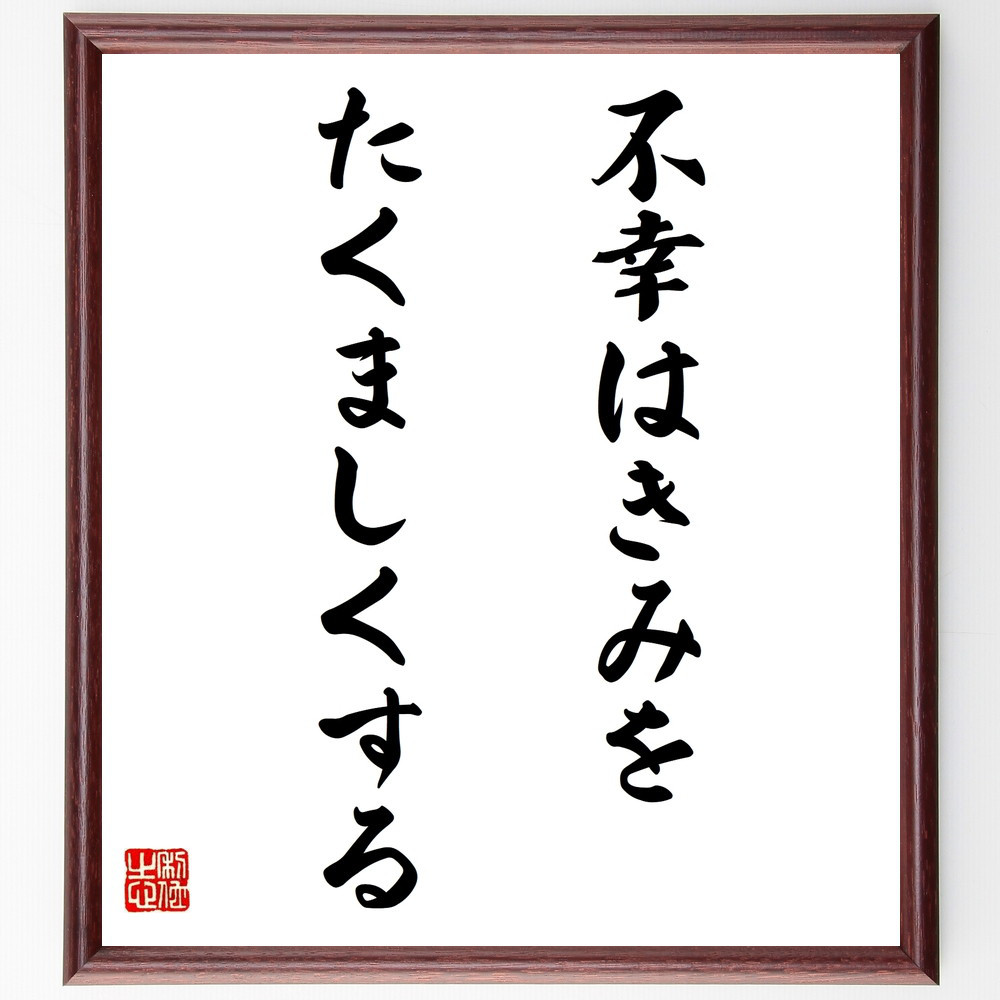 不幸はきみを
たくましくする